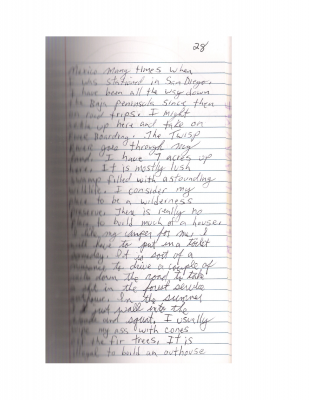 28
Mexico many times when
I was stationed in San Diego.
I have been all the way down
the Baja peninsula since then
on road trips. I might
up here and take on
Boarding. The Twisp
goes through my
land. I have 7 acres up
here. It is mostly lush
swamp filled with astounding
wildlife. I consider my
place to be a wilderness
preserve. There is really no
place to build much of a house.
I like my camper for now. I
will have to put in a toilet
someday. It is sort of a
nuisance to drive a couple of
down the road to take
a in the forest service
outhouse. In the summer
I just walk into the
woods and squat. I usually
wipe my ass with cones
of the fir trees. It is
illegal to build an outhouse